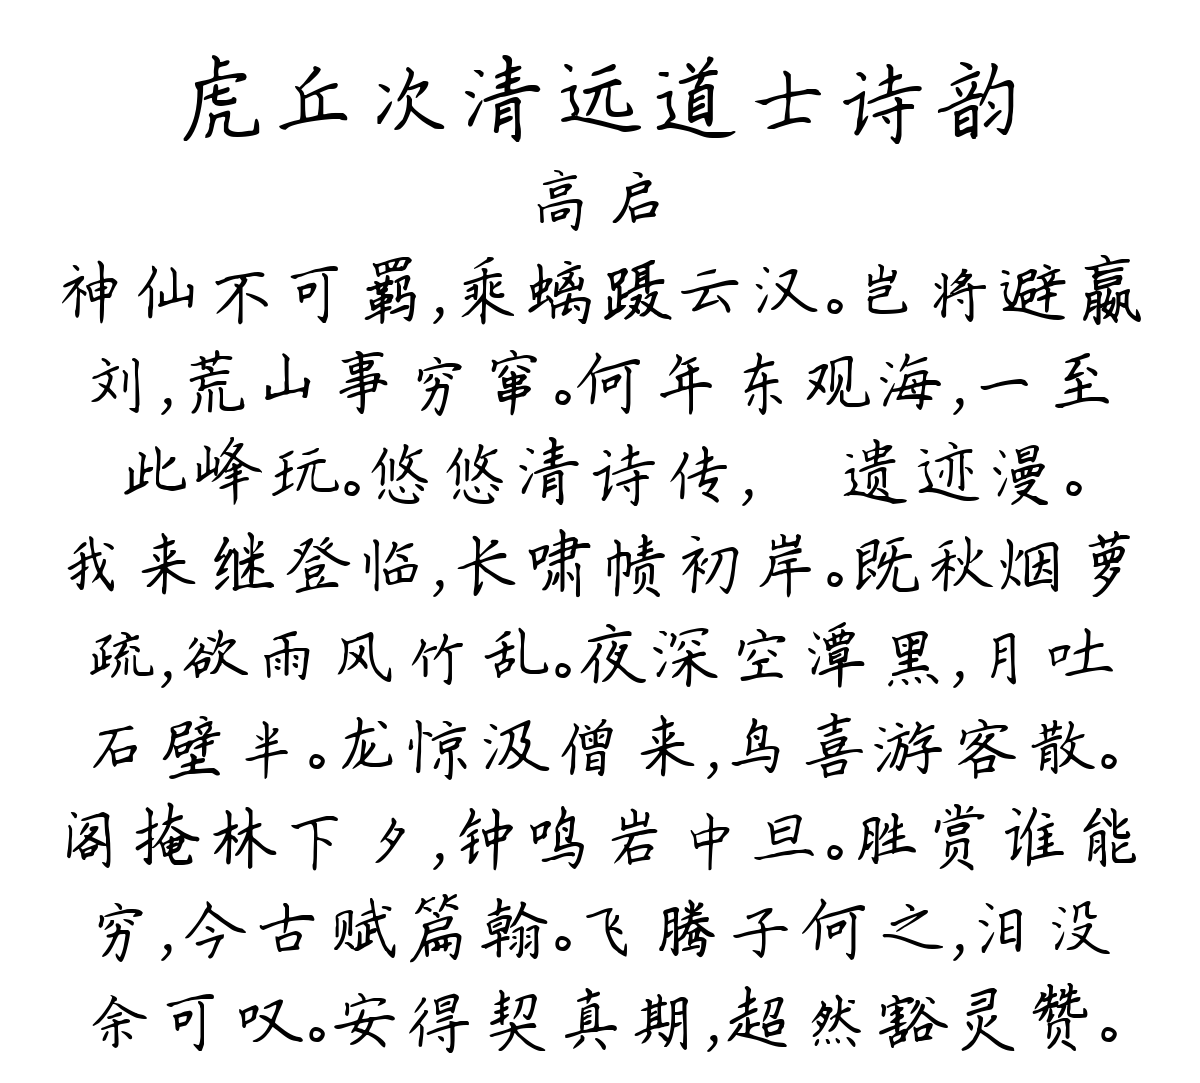 虎丘次清远道士诗韵
高启
神仙不可羁,乘螭蹑云汉。岂将避嬴
刘,荒山事穷窜。何年东观海,一至
此峰玩。悠悠清诗传, 遗迹漫。
我来继登临,长啸帻初岸。既秋烟萝
疏,欲雨风竹乱。夜深空潭黑,月吐
石壁半。龙惊汲僧来,鸟喜游客散。
阁掩林下夕,钟鸣岩中旦。胜赏谁能
穷,今古赋篇翰。飞腾子何之,汩没
余可叹。安得契真期,超然豁灵赞。